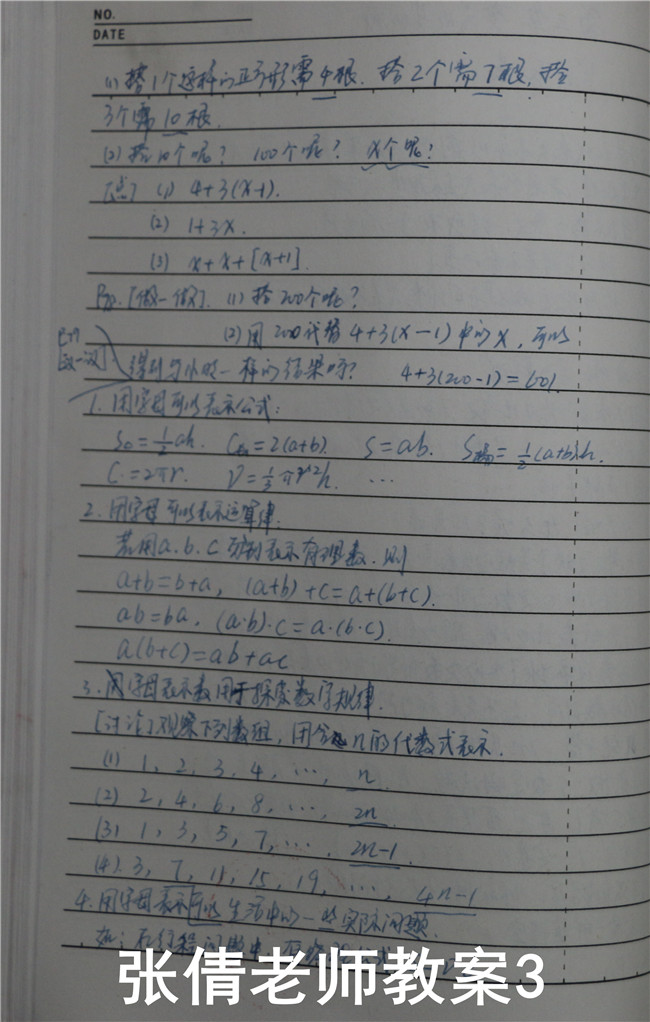 NO.
DATE
(1) 搭1个这样的正方形需4根. 搭2个需7根, 搭
3个需10根.
(2) 搭10个呢? 100个呢? x个呢?
[总] (1) 4+3(x-1).
(2) 1+3x.
(3) x+x+[x+1].
[做一做]. (1) 搭200个呢?
(2) 用200代替4+3(x-1)中的x, 可以
议一议
得到与小明一样的结果吗? 4+3(200-1)=601.
1. 用字母可以表示公式:
S△=½ah. C=2(a+b). S=ab. S=½(a+b)h.
C=2πr. V=⅓πr²h. ...
2. 用字母可以表示运算律.
若用a.b.c分别表示有理数, 则
a+b=b+a, (a+b)+c=a+(b+c).
ab=ba, (a·b)·c=a·(b·c).
a(b+c)=ab+ac
3. 用字母表示数用于探索数字规律.
[讨论] 观察下列数组, 用含n的代数式表示.
(1) 1, 2, 3, 4, ..., n
(2) 2, 4, 6, 8, ..., 2n
(3) 1, 3, 5, 7, ..., 2n-1.
(4). 3, 7, 11, 15, 19, ..., 4n-1
4. 用字母表示生活中的一些实际问题.
如: 在行程问题中
张倩老师教案3